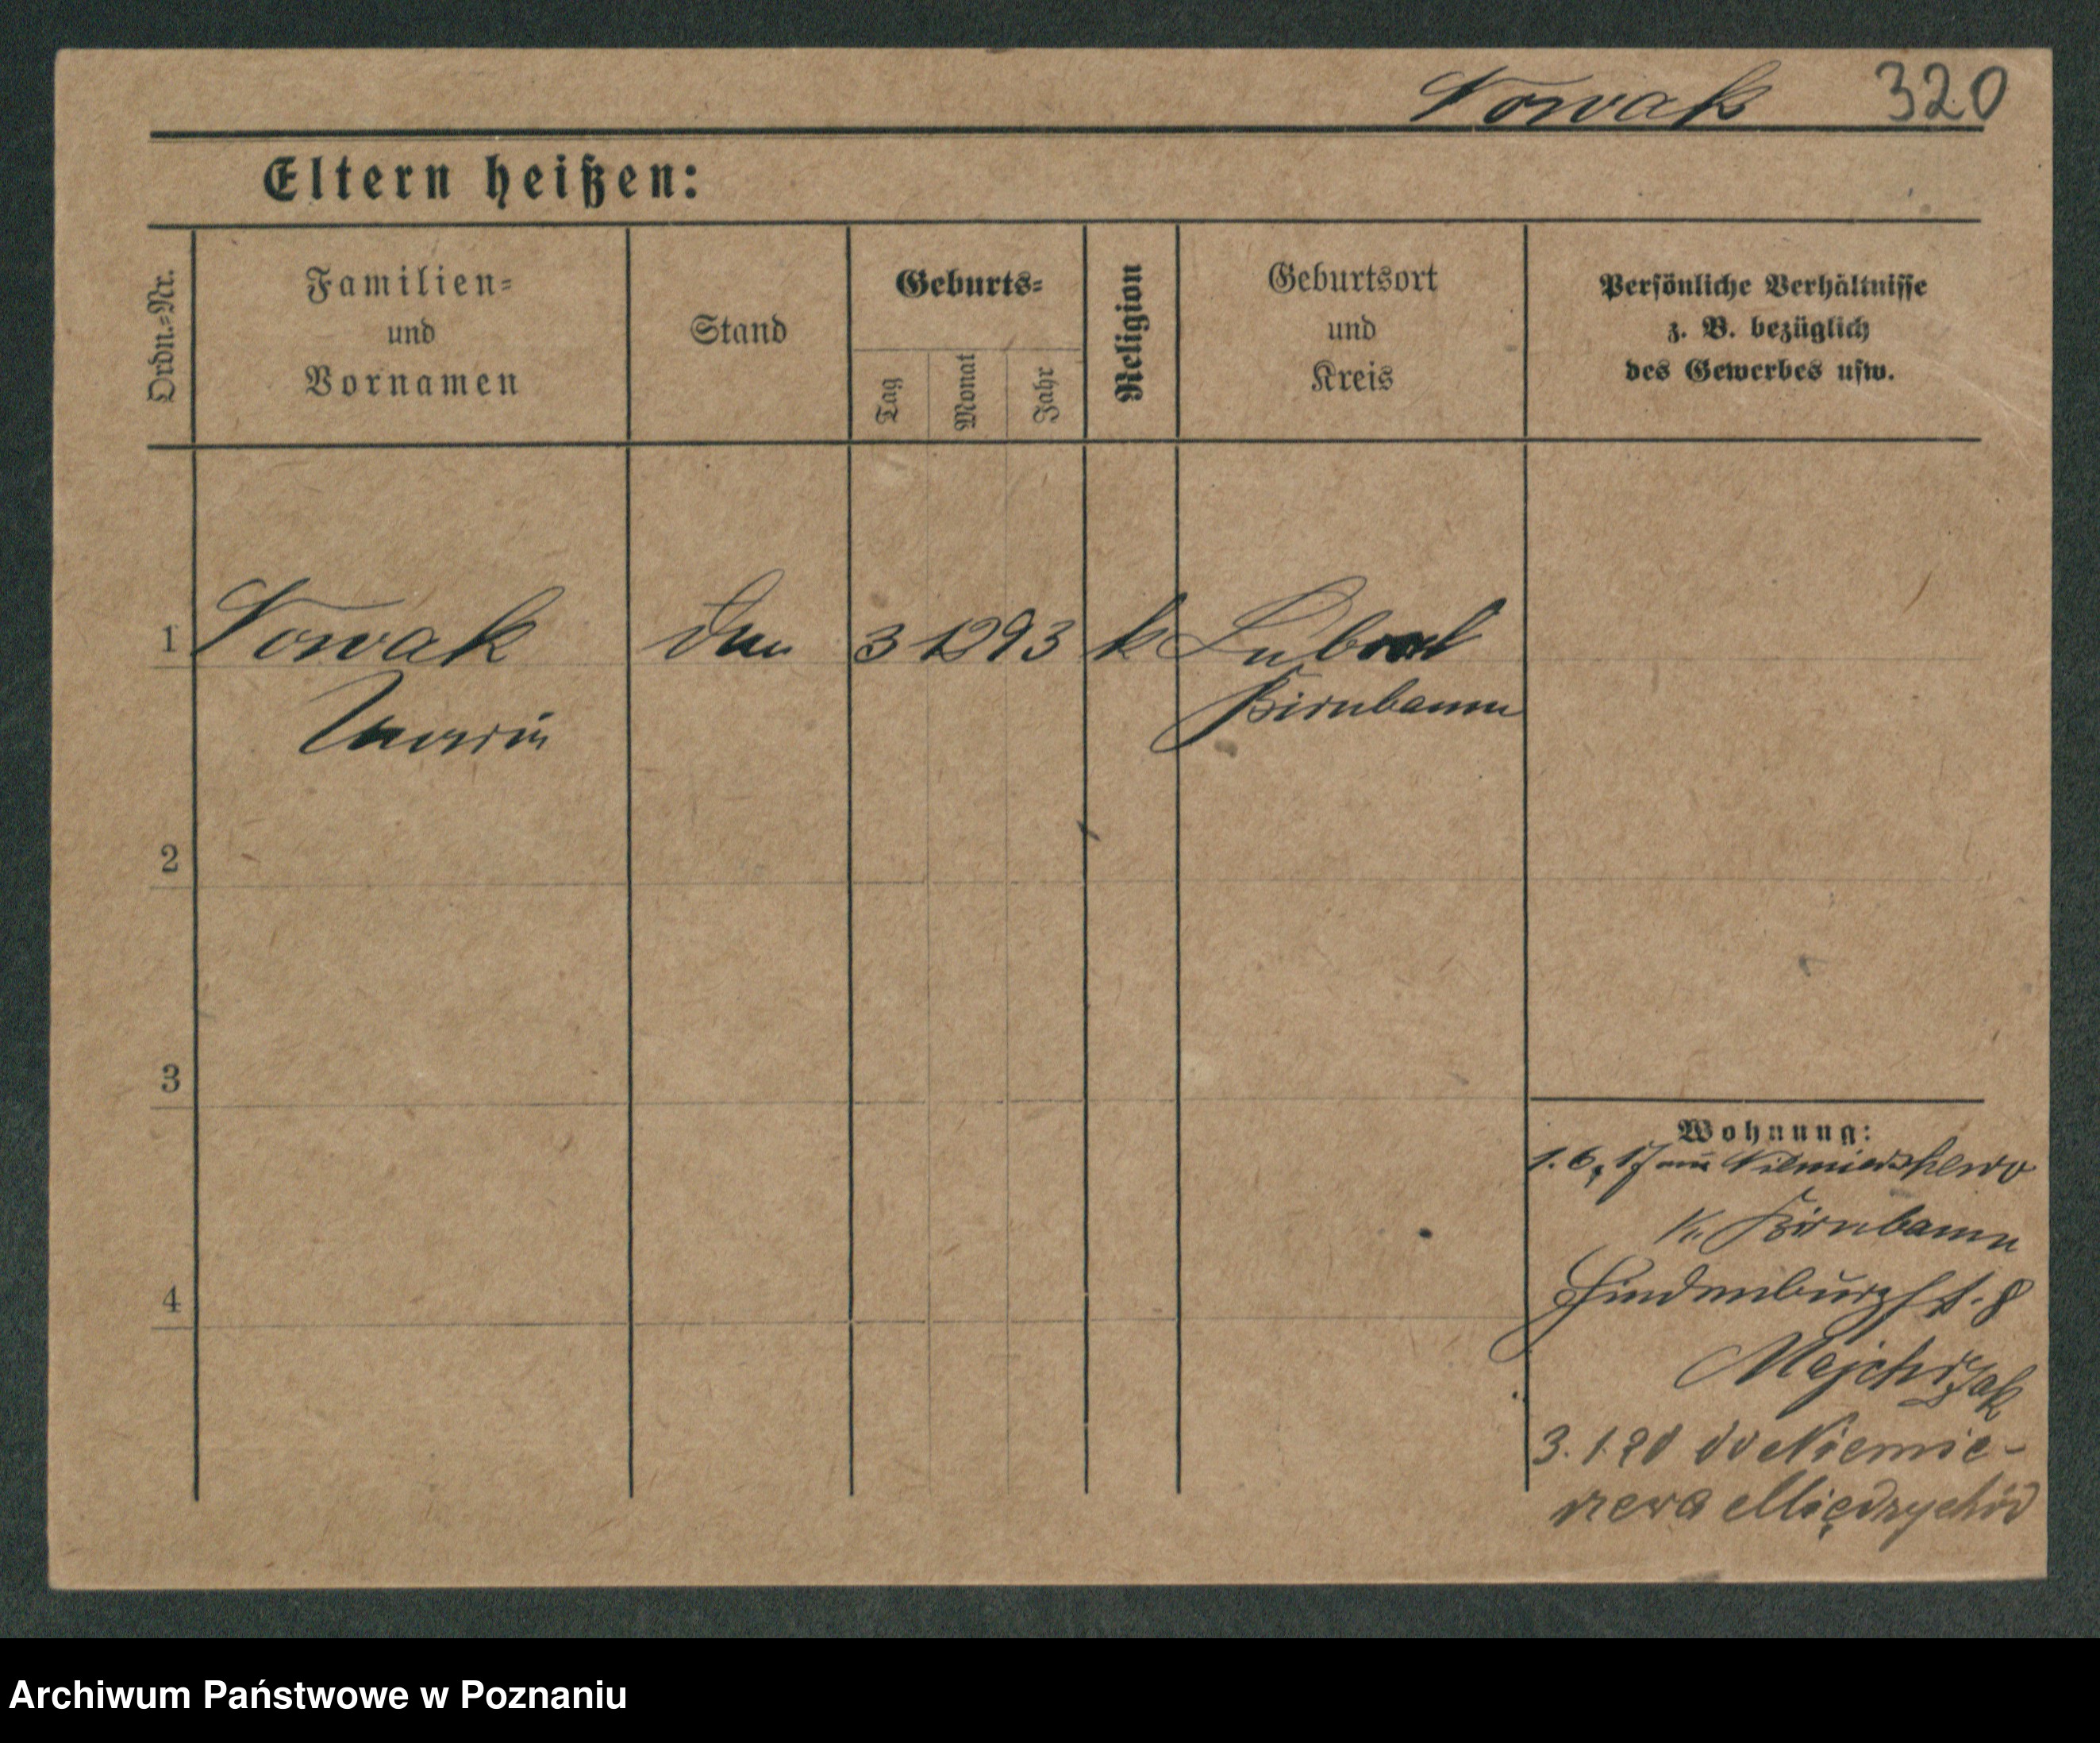 Nowak 320
Eltern heißen:
Ordn.-Nr.
Familien-
und
Vornamen
Stand
Geburts-
Tag
Monat
Jahr
Religion
Geburtsort
und
Kreis
Persönliche Verhältnisse
z. B. bezüglich
des Gewerbes usw.
1 Nowak 3 12 93 k
Maria Birnbaum
2
3
4
Wohnung:
1.6.17 aus
K. Birnbaum
Hindenburgst. 8
Majchrzak
3.1.20 do Niemie-
rzewa Międzychód
Archiwum Państwowe w Poznaniu